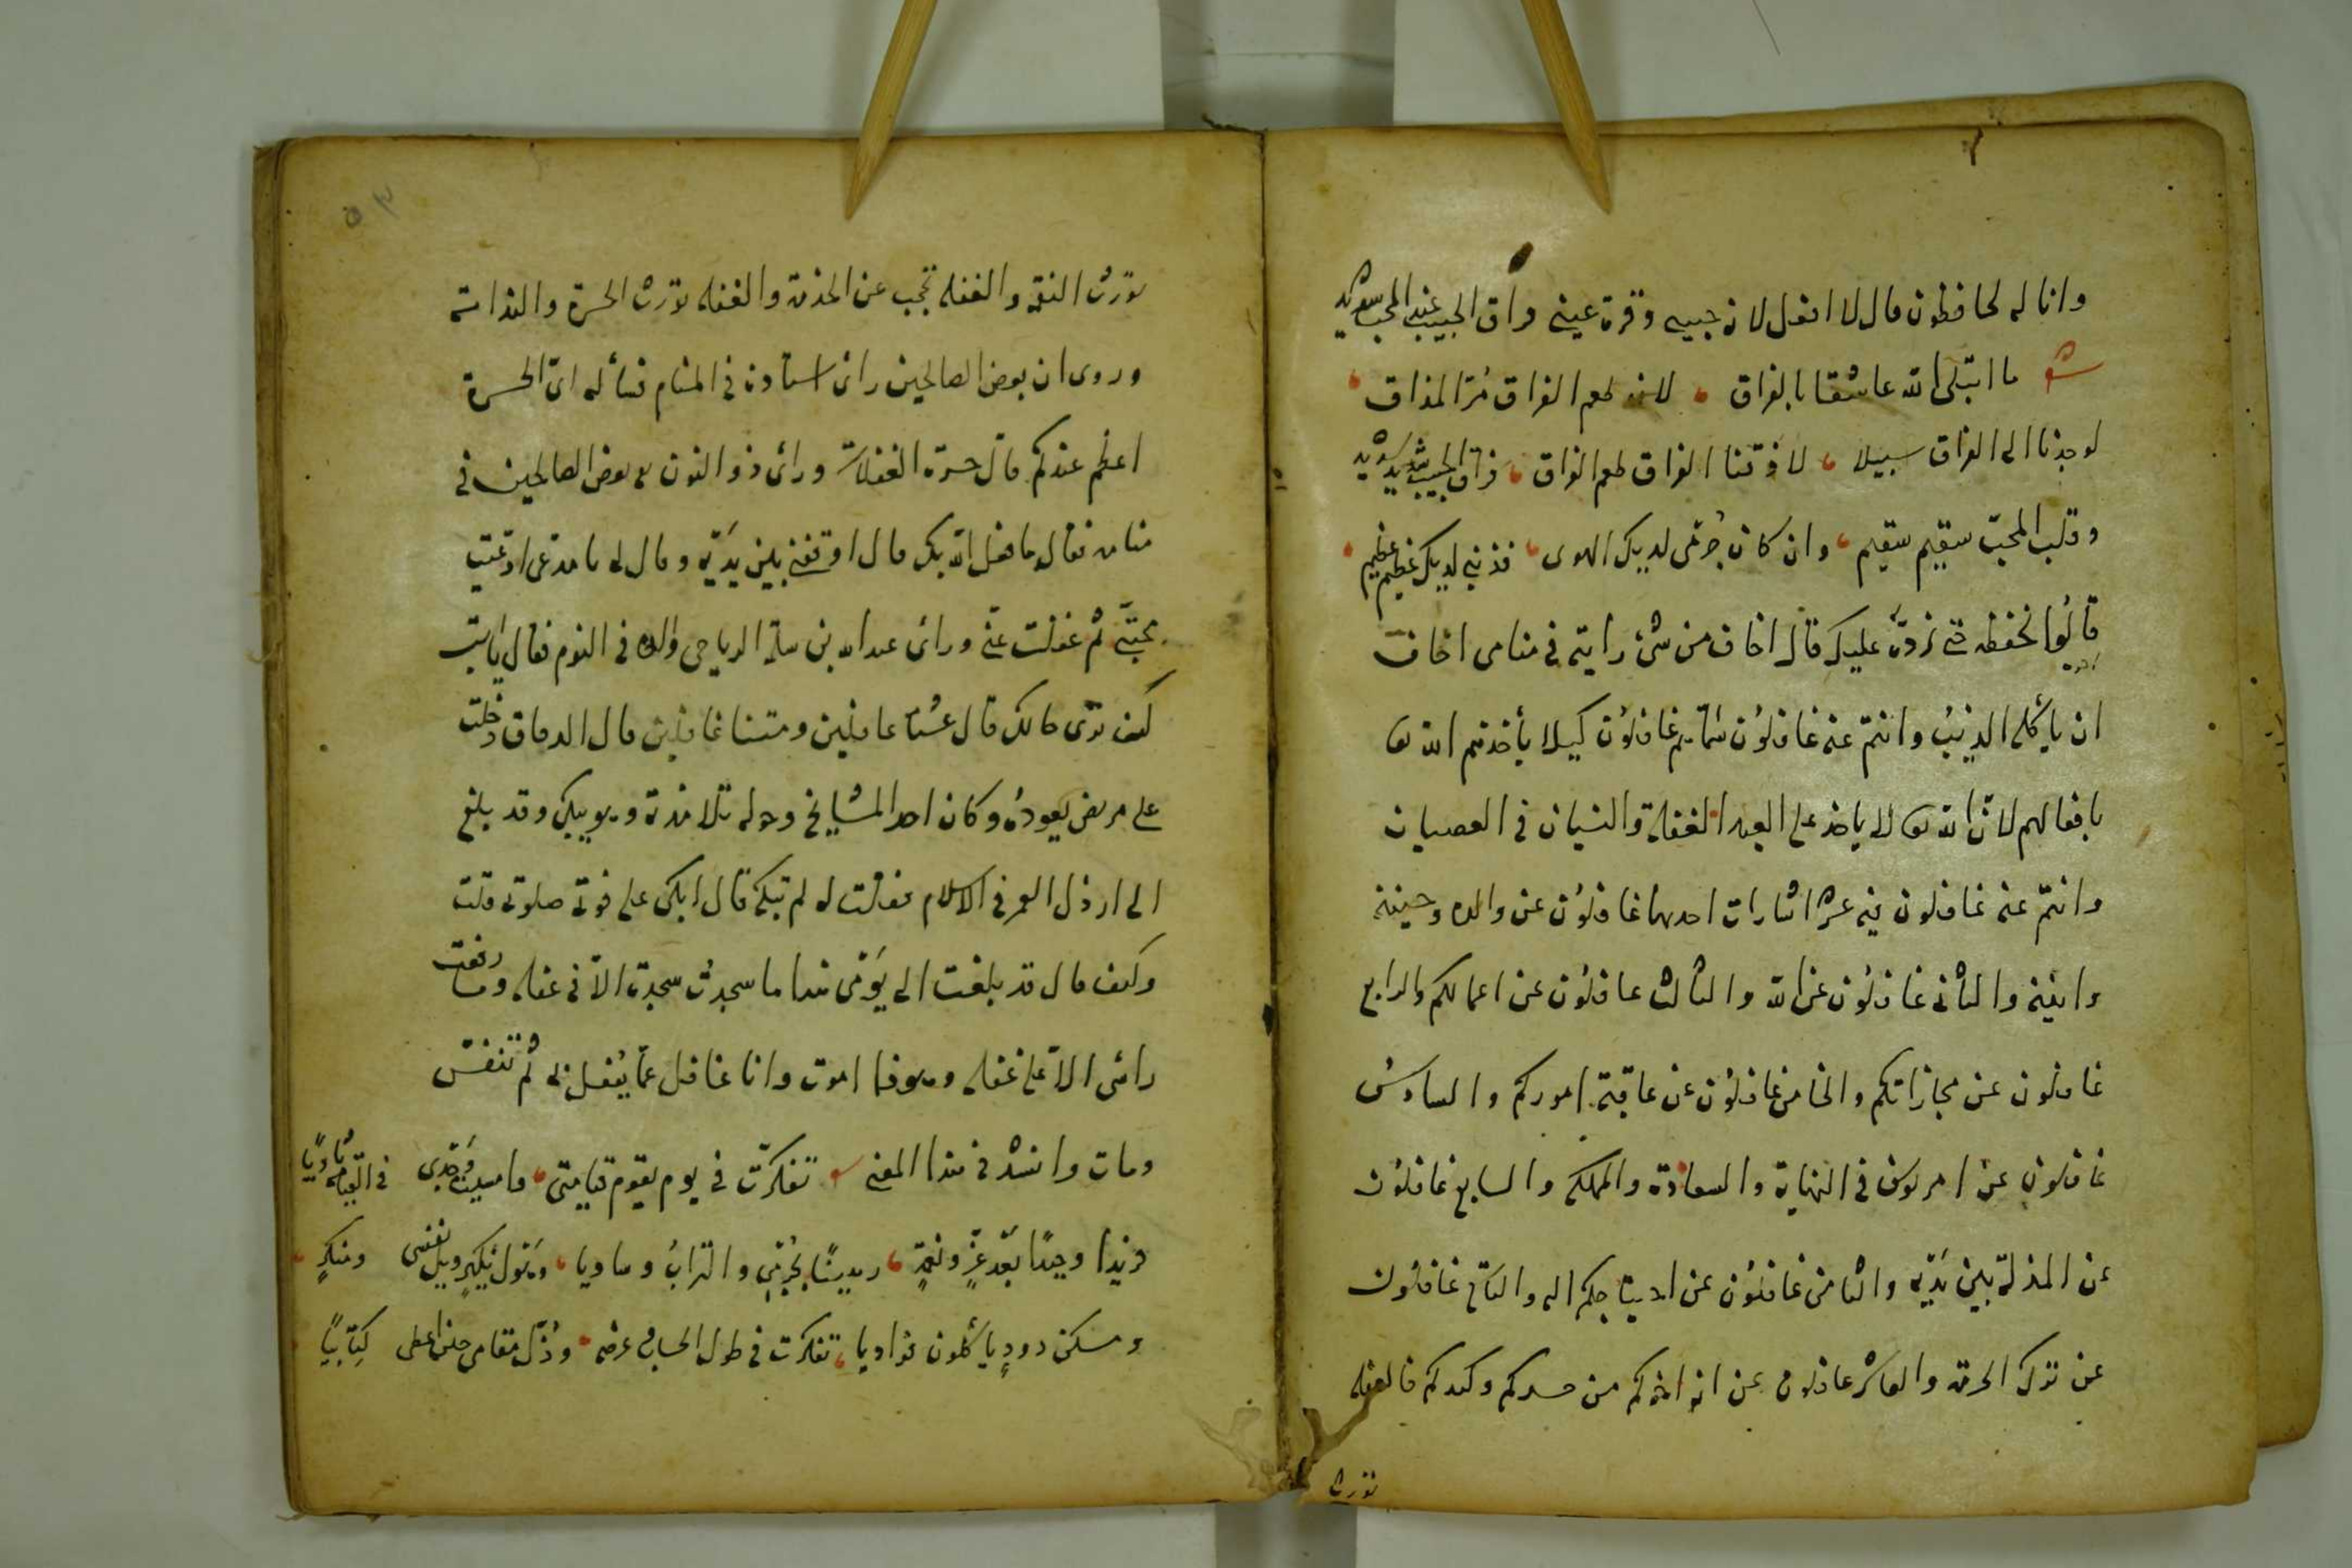 وانا له لحافظون قال لا افعل لانه حبيبى وقرة عينى فراق الحبيب عند المحب شديد
شعر ما ابتلى الله عاشقا بالفراق لانه طعم الفراق مر المذاق
لو وجدنا الى الفراق سبيلا لاذقنا الفراق طعم الفراق فراق الحبيب شديد شديد
وقلب المحب سقيم سقيم وان كان جرمى لديك الهوى فذنبى لديك عظيم عظيم
قالوا نحفظه حتى نرده عليك قال اخاف من شئ رايته فى منامى اخاف
ان ياكله الذئب وانتم عنه غافلون غافلون كيلا يأخذهم الله تعالى
بافعالهم لان الله تعالى لا ياخذ على العبد الغفلة والنسيان فى العصيان
وانتم عنه غافلون فيه عشر اشارات احدها غافلون عن والده
والثانى غافلون عن الله والثالث غافلون عن اعمالكم والرابع
غافلون عن مجازاتكم والخامس غافلون عن عاقبة اموركم والسادس
غافلون عن امر يوسف فى النهاية والسعادة والمملكة والسابع غافلون
عن المذلة بين يديه والثامن غافلون عن احتياجكم اليه والتاسع غافلون
عن ترك الحرمة والعاشر غافلون عن انه اخوكم من حسدكم وكيدكم فالغفلة
تورث
٥٣
تورث النقمة والغفلة تحجب عن الخدمة والغفلة تورث الحسرة والندامة
وروى ان بعض الصالحين راى استاده فى المنام فسأله اى الحسرة
اعظم عندكم قال حسرة الغفلات وراى ذو النون بعض الصالحين فى
منامه فقال ما فعل الله بك قال اوقفنى بين يديه وقال له يا مدعى ادعيت
محبتى ثم غفلت عنى وراى عبد الله بن سلمة الرياحى والده فى النوم فقال يا ابت
كيف ترى حالك قال عشنا غافلين ومتنا غافلين قال الدقاق دخلت
على مريض يعوده وكان احد المشايخ وحوله تلامذة وهو يبكى وقد بلغ
الى ارذل العمر فى الاسلام فقلت له لم تبكى قال ابكى على فوت صلوتى قلت
وكيف قال قد بلغت الى يومى هذا ما سجدت سجدة الا فى غفلة وما رفعت
راسى الا على غفلة وهوذا اموت وانا غافل عما يفعل بى ثم تنفس
ومات وانشد فى هذا المعنى شعر تفكرت فى يوم تقوم قيامتى واميت وخدى فى القيمة باديا
فريدا وحيدا بعد عز ونعمة رهينا بجرمى والتراب وساديا وهول نكير ويل نفسى ومنكر
ومسكن دود ياكلون فواديا تفكرت فى طول الحساب وعرضه وذل مقامى حين اعطى كتابيا